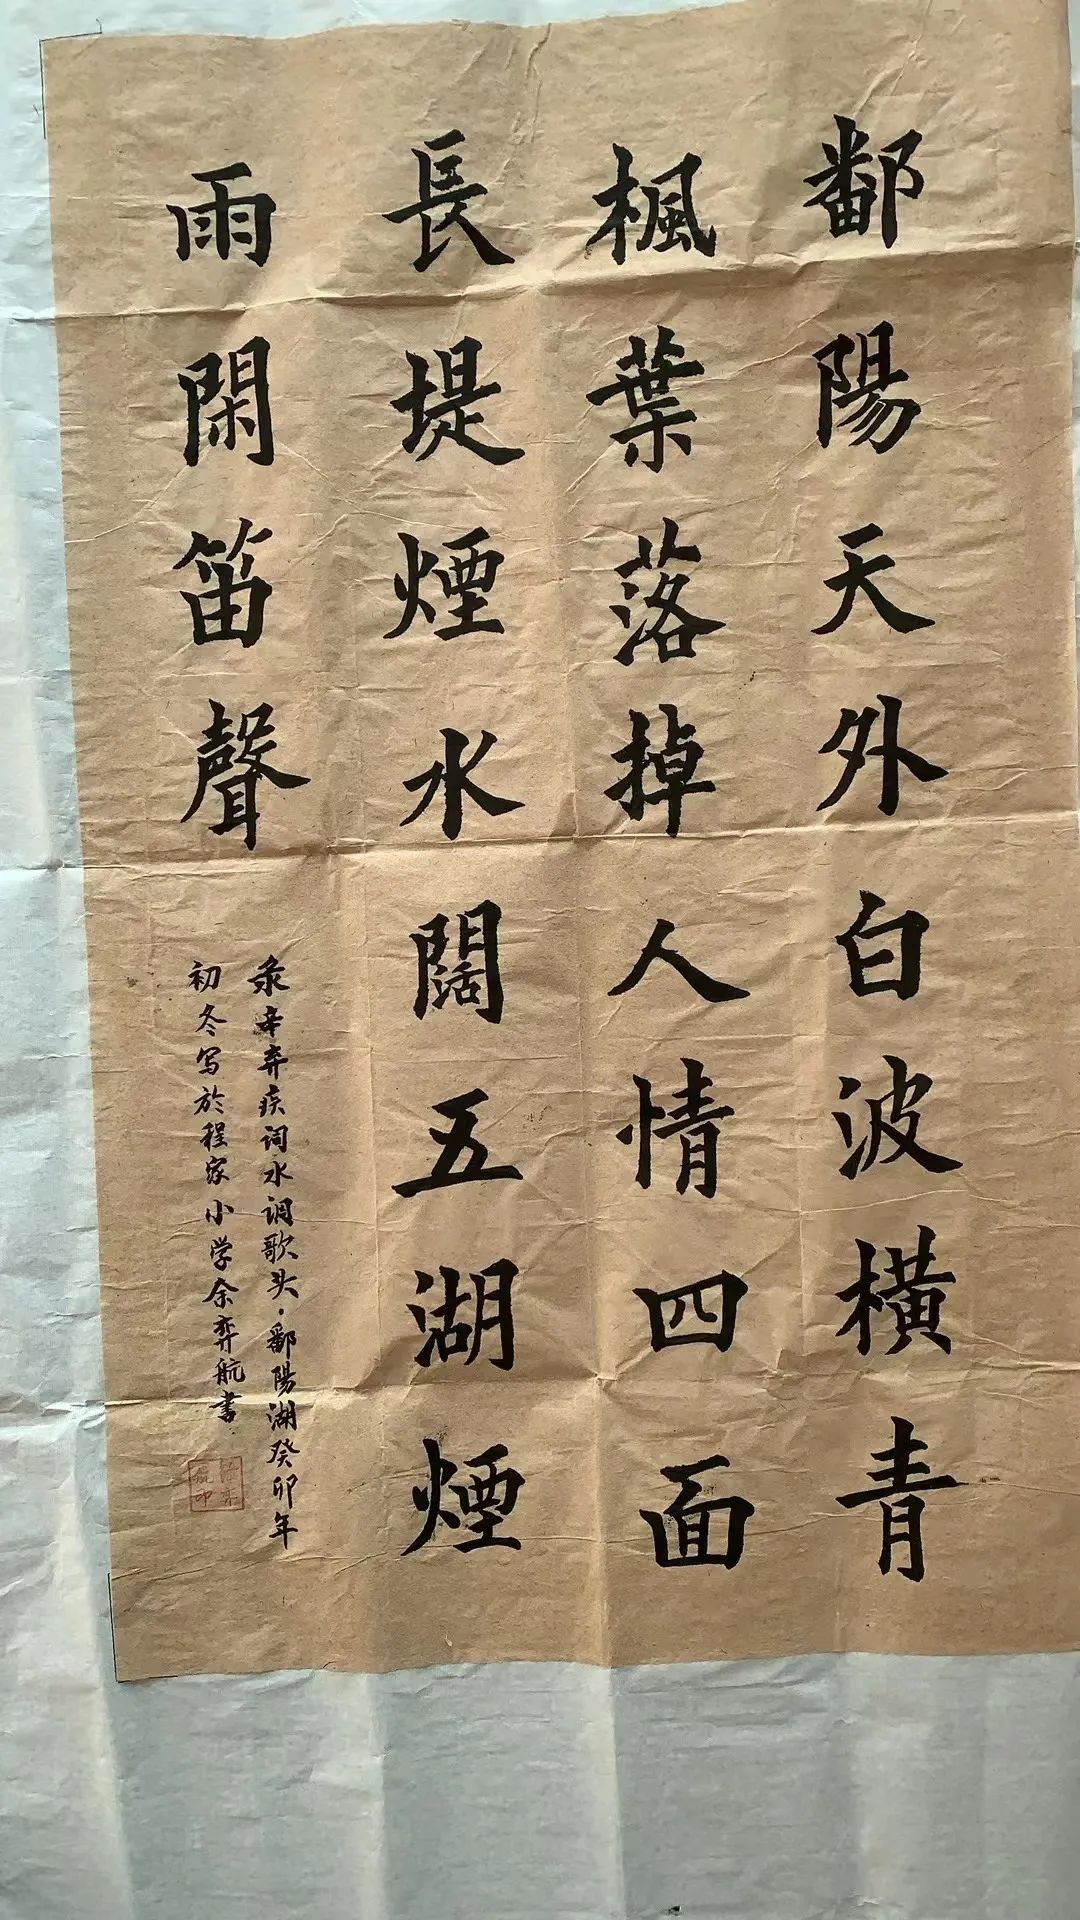 鄱陽天外白波橫青
楓葉落掉人情四面
長堤煙水闊五湖煙
雨閑笛聲
录辛弃疾词水调歌头·鄱陽湖癸卯年
初冬写於程家小学余弈航書